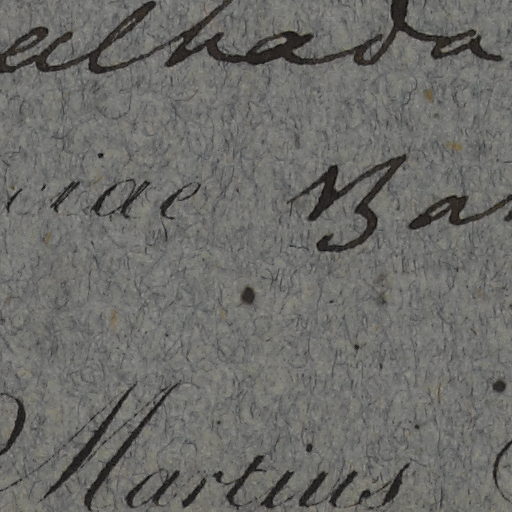 alhada
iae Ba
Martius